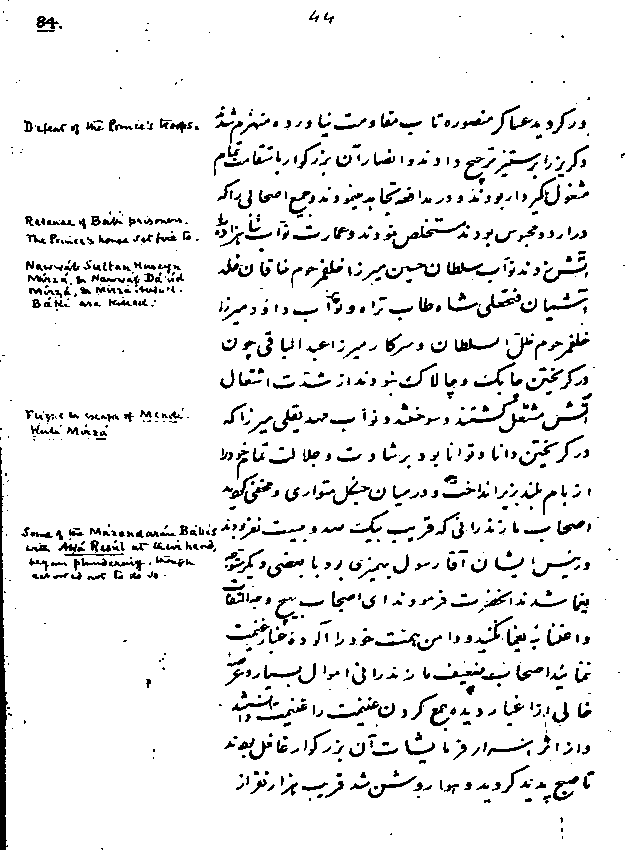 84.
۴۴
Defeat of the Prince's troops.
Release of Bábí prisoners.
The Prince's house set fire to.
Nawwáb Sultan Huseyn
Mírzá, & Nawwáb Dá'úd
Mírzá, & Mírzá Abdu'l-
Bákí are killed.
Flight & escape of Mendí-
Kulí Mírzá
Some of the Mázandarán Bábís
with Aká Resúl at their head,
began plundering, though
not to do so.
در گردید عساکر منصوره تاب مقاومت نیاورده منهزم شدند
و گریز را بر ستیز ترجیح دادند و انصار آن بزرگوار تمام
مشغول گیر دار بودند و در مدافعه مینمودند و جمع اصحابی را که
در اردو محبوس بودند مستخلص نمودند و عمارت نواب شاهزاده را
آتش زدند نواب سلطان حسین میرزا خلف مرحوم خاقان خلد
آشیان فتحعلی شاه طاب ثراه و نواب داود میرزا
خلف مرحوم ظل السلطان و سرکار میرزا عبد الباقی چون
در گریختن چابک و چالاک نبودند از شدت اشتعال
آتش مشتعل گشتند و سوختند و نواب مهدیقلی میرزا که
در گریختن دانا و توانا بود برشادت و جلالت تمام خود را
از بام بلند بزیر انداخت و در میان جنگل متواری و مخفی گردید
اصحاب مازندرانی که قریب یک صد و بیست نفر بودند
و رئیس ایشان آقا رسول بهمیزی بود با بعضی دیگر متوجه
یغما شدند آنحضرت فرمودند ای اصحاب هیچ وجه التفات
و اعتنا به یغما نکنید و دامن همت خود را آلوده غبار غنیمت
ننمائید اصحاب ضعیف مازندرانی اموال بسیار و
خالی از اغیار دیده جمع کردن غنیمت را غنیمت دانستند
و از اثر اسرار فرمایشات آن بزرگوار غافل بودند
تا صبح پدید گردید و هوا روشن شد قریب هزار نفر از